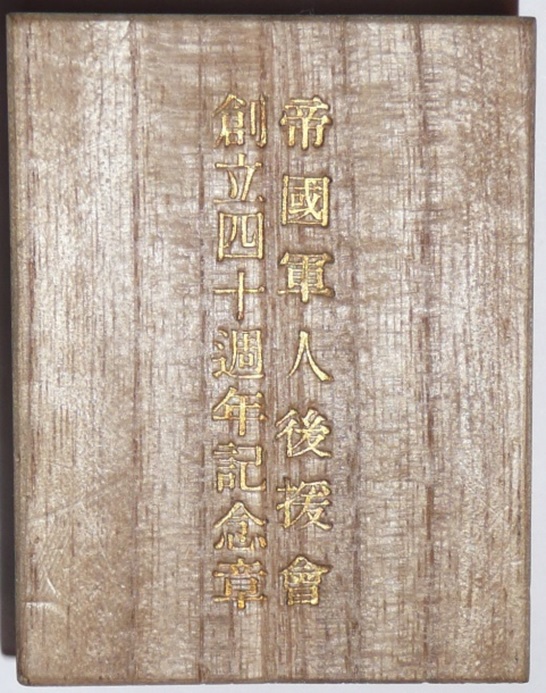 帝國軍人後援會
創立四十週年記念章